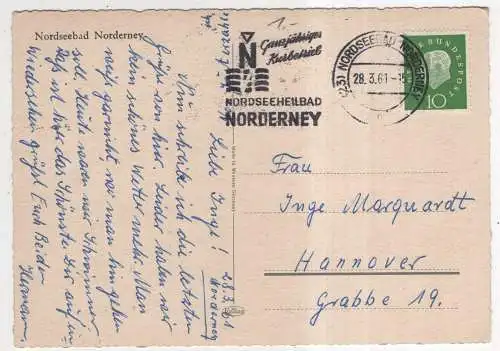 Nordseebad Norderney
28.3.61
Norderney
Liebe Inge!
Nun schreibe ich die letzten
Grüße von hier. Leider haben wir
kein schönes Wetter mehr. Man
weiß garnicht, wo man hingehen
soll. Heute waren wir schwimmen
Daß ist hier das Schönste. Bis auf ein
Wiedersehen grüßt Euch Beiden
Herman
Ganzjähriger
Kurbetrieb
N
NORDSEEHEILBAD
NORDERNEY
(23) NORDSEEBAD NORDERNEY
28.3.61
BUNDESPOST
10
Frau
Inge Marquardt
Hannover
Grabbe 19.